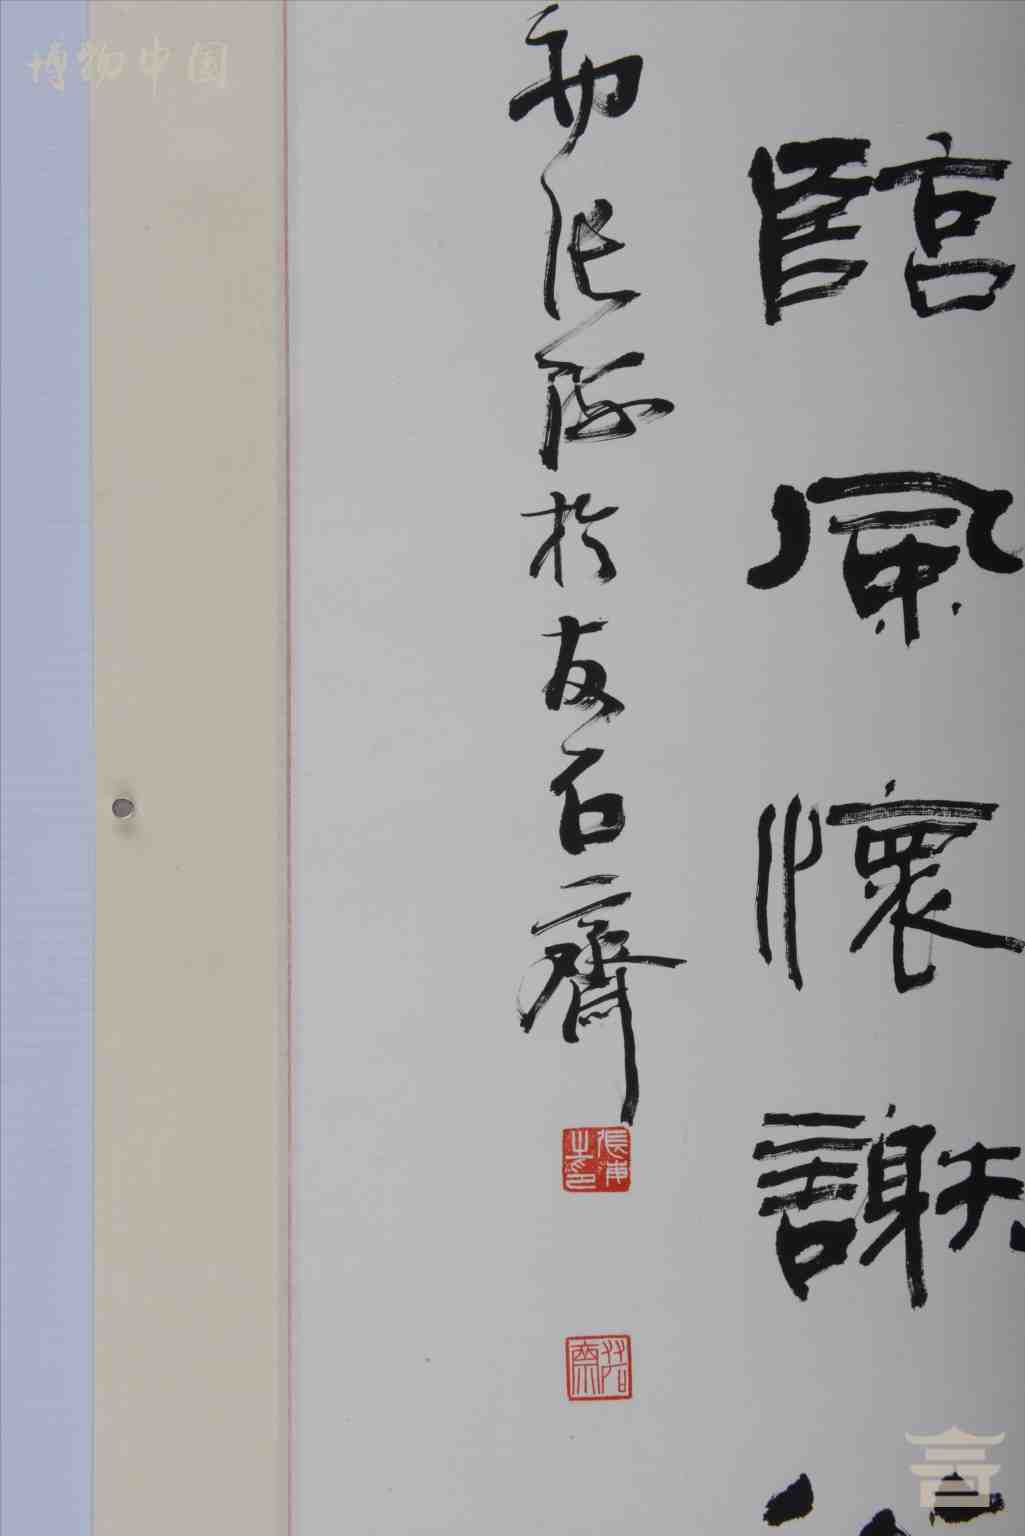 博物中国
臨風懷謝
张海於友石齋
張海之印